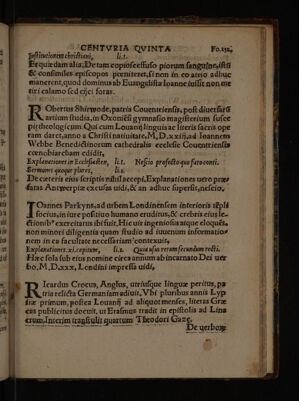 CENTURIA QVINTA Fo.152.
Institutionem christiani, li.1.
Et quædam alia. De tam copioso effuso piorum sanguine, isti
& consimiles episcopos pœniteret, si non in eo atrio adhuc
manerent, quod dominus ab Euangelista Ioanne iussit non me
tiri calamo sed eijci foras.
RObertus Shirwode, patria Couentriensis, post diuersarū
artium studia, in Oxoniēsi gymnasio magisterium susce
pit theologicum. Qui cum Louanij linguæ ac literis sacris ope
ram daret, anno a Christi natiuitate, M.D.xxiij, ad Ioannem
Webbe Benedictinorum cathedralis ecclesie Couentriensis
cœnobiarcham edidit,
Explanationes in Ecclesiasten, li.1. Nescio profecto quo faro conti.
Sermones quoque plures, li.1.
De cæteris eius scriptis nihil accepi. Explanationes uero præ
fatas Antwerpiæ excusas uidi, & an adhuc supersit, nescio.
IOannes Parkyns, ad urbem Londinensem interioris tēpli
socius, in iure positiuo humano eruditus, & crebris eius le
ctionibus exercitatus
non minori diligentia quam studio ad iuuenum informatio
nem in ea facultate necessariam contexuit,
Explanationes xi. capitum, li.1.
Hæc sola sub eius nomine circa annum ab incarnato Dei uer
bo, M.D.xxx, Londini impressa uidi.
RIcardus Crocus, Anglus, utriusque linguæ peritus, pa
tria relicta Germaniam adiuit. Vbi pluribus annis Lyp
siæ primum, postea Louanij ad aliquot menses, literas Græ
cas publicitus docuit, ut Erasmus tradit in epistola ad Lina
crum. Interim transtulit quartum Theodori Gazę,
De uerborū